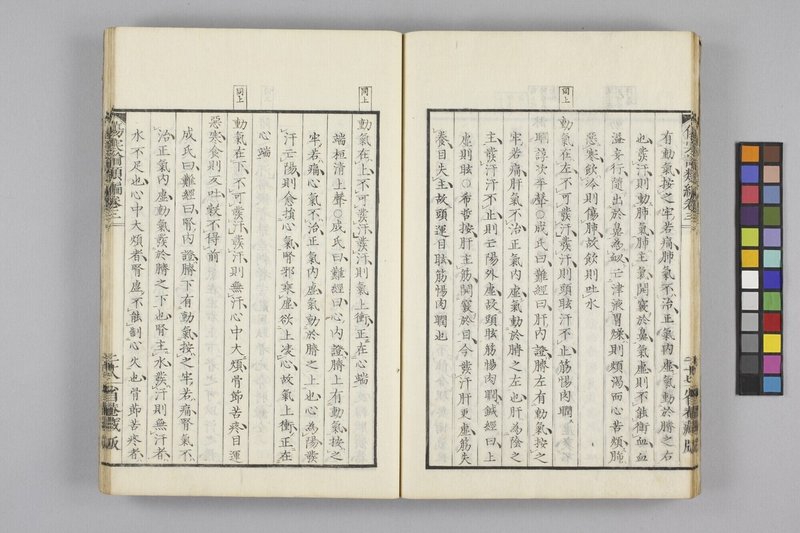 有動氣按之牢若痛肺氣不治正氣內虛氣動於臍之右
也發汗則動肺氣肺主氣開竅於鼻氣虛則不能衛血血
溢妄行隨出於鼻為衄亡津液胃燥則煩渴而心苦煩肺
惡寒飲冷則傷肺故飲則吐水
同上
動氣在左不可發汗發汗則頭眩汗不止筋惕肉瞤
瞤諄次平聲○成氏曰難經曰肝內證臍左有動氣按之
牢若痛肝氣不治正氣內虛氣動於臍之左也肝為陰之
主發汗汗不止則亡陽外虛故頭眩筋惕肉瞤鍼經曰上
虛則眩○希哲按肝主筋開竅於目今發汗肝更虛筋失
養目失主故頭運目眩筋惕肉瞤也
傷寒論類編卷三
二十七
同上
動氣在上不可發汗發汗則氣上衝正在心端
端桓清上聲○成氏曰難經曰心內證臍上有動氣按之
牢若痛心氣不治正氣內虛氣動於臍之上也心為陽發
汗亡陽則愈損心氣腎邪乘虛欲上凌心故氣上衝正在
心端
同上
動氣在下不可發汗發汗則無汗心中大煩骨節苦疼目運
惡寒食則反吐穀不得前
成氏曰難經曰腎內證臍下有動氣按之牢若痛腎氣不
治正氣內虛動氣發於臍之下也腎主水發汗則無汗者
水不足也心中大煩者腎虛不能制心火也骨節苦疼者
傷寒論類編卷三
二十八
省菴藏版